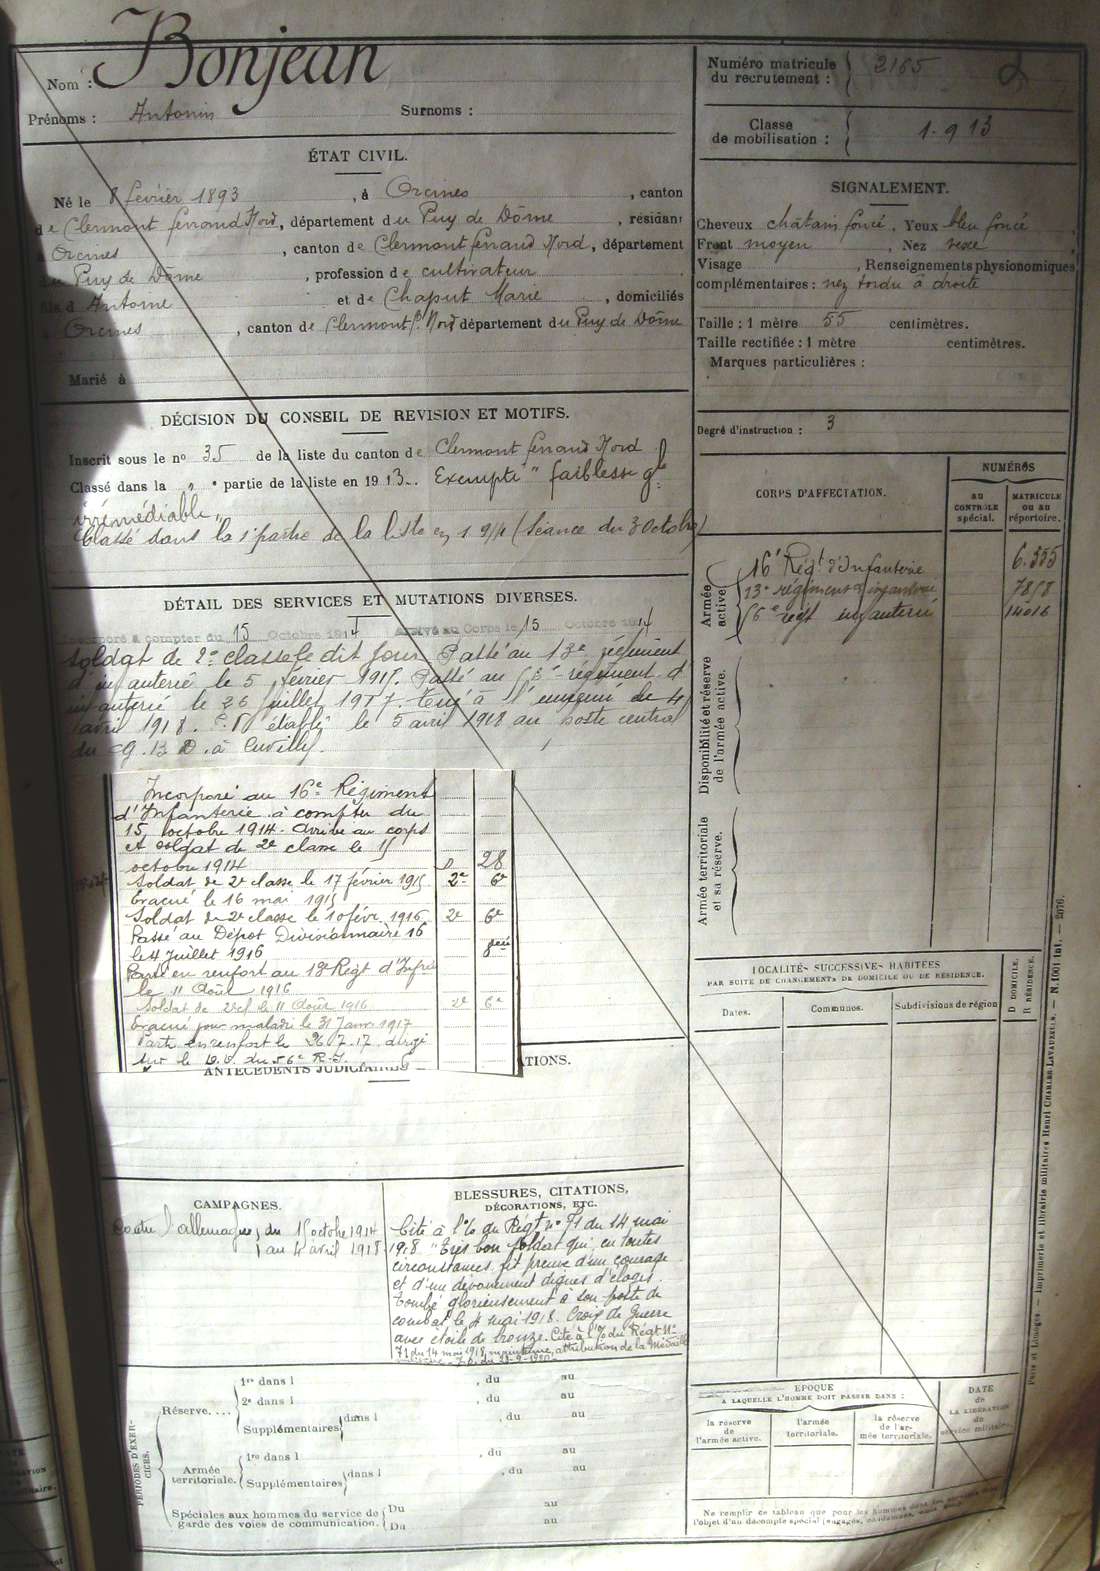 Nom : Bonjean
Prénoms : Antonin Surnoms :
ÉTAT CIVIL.
Né le 8 février 1893, à Orcines, canton
de Clermont ferrand Nord, département du Puy de Dôme, résidant
Orcines, canton de Clermont ferrand Nord, département
du Puy de Dôme, profession de cultivateur
fils d'Antoine et de Chaput Marie, domiciliés
Orcines, canton de Clermont f. Nord département du Puy de Dôme
Marié à
DÉCISION DU CONSEIL DE REVISION ET MOTIFS.
Inscrit sous le nº 35 de la liste du canton de Clermont ferrand Nord
Classé dans la " partie de la liste en 1913. Exempté "faiblesse gle
irrémédiable"
Classé dans la 1e partie de la liste en 1914 (Séance du 3 Octobre)
DÉTAIL DES SERVICES ET MUTATIONS DIVERSES.
Incorporé à compter du 15 Octobre 1914 Arrivé au Corps le 15 Octobre 1914
Soldat de 2e classe le dit jour. Passé au 13e régiment
d'infanterie le 5 février 1915. Passé au 56e régiment d'
infanterie le 26 juillet 1917. Tué à l'ennemi le 4
avril 1918. établi le 5 avril 1918 au poste central
du G.B.D. à Cuvilly.
Incorporé au 16e Régiment
d'Infanterie à compter du
15 octobre 1914. arrivé au corps
et soldat de 2e classe le 15
octobre 1914 28
Soldat de 2e classe le 17 février 1915 2e 6e
Évacué le 16 mai 1915
Soldat de 2e classe le 10 févr. 1916 2e 6e
Passé au Dépôt Divisionnaire 16
le 4 Juillet 1916
Parti en renfort au 13e Regt d'Infrie
le 11 Août 1916
Soldat de 2e cl le 11 Août 1916 2e 6e
Évacué pour maladie le 31 Janv 1917
Parti en renfort le 26.7.17 dirigé
sur le D.D. du 56e R.I.
ATIONS.
ANTÉCÉDENTS JUDICIAIRES
CAMPAGNES.
Contre l'allemagne, du 15 octobre 1914
au 4 avril 1918
BLESSURES, CITATIONS,
DÉCORATIONS, ETC.
Cité à l'o/ du Régt nº 71 du 14 mai
1918 "Très bon soldat qui, en toutes
circonstances fit preuve d'un courage
et d'un dévouement dignes d'éloges.
tombé glorieusement à son poste de
combat le 4 mai 1918. Croix de Guerre
avec étoile de bronze. Cité à l'o/ du Régt nº
71 du 14 mai 1918, attribution de la Médaille
militaire
PÉRIODES D'EXERCICES.
Réserve....
1re dans l , du au
2e dans l , du au
Supplémentaires dans l , du au
Armée territoriale.
1re dans l , du au
Supplémentaires dans l , du au
Spéciales aux hommes du service de
garde des voies de communication.
Du au
Du au
Numéro matricule
du recrutement : 2165
Classe
de mobilisation : 1913
SIGNALEMENT.
Cheveux châtain foncé, Yeux bleu foncé
Front moyen, Nez vexe
Visage , Renseignements physionomiques
complémentaires : nez tordu à droite
Taille : 1 mètre 55 centimètres.
Taille rectifiée : 1 mètre centimètres.
Marques particulières :
Degré d'instruction : 3
CORPS D'AFFECTATION.
NUMÉROS
AU
CONTRÔLE
spécial.
MATRICULE
OU AU
répertoire.
Armée
active.
16e Régt d'Infanterie 6.555
13e régiment d'infanterie 7858
56e regt infanterie 14016
Disponibilité et réserve
de l'armée active.
Armée territoriale
et sa réserve.
LOCALITÉS SUCCESSIVES HABITÉES
PAR SUITE DE CHANGEMENTS DE DOMICILE OU DE RÉSIDENCE.
Dates.
Communes.
Subdivisions de région
D DOMICILE.
R RÉSIDENCE.
EPOQUE
A LAQUELLE L'HOMME DOIT PASSER DANS :
la réserve
de
l'armée active.
l'armée
territoriale.
la réserve
de l'ar-
mée territoriale.
DATE
de
LA LIBÉRATION
du
service militaire.
Ne remplir ce tableau que pour les hommes
l'objet d'un décompte spécial (engagés,
Paris et Limoges. — Imprimerie et librairie militaires Henri CHARLES-LAVAUZELLE. — N. 1001 Int. — 2076.